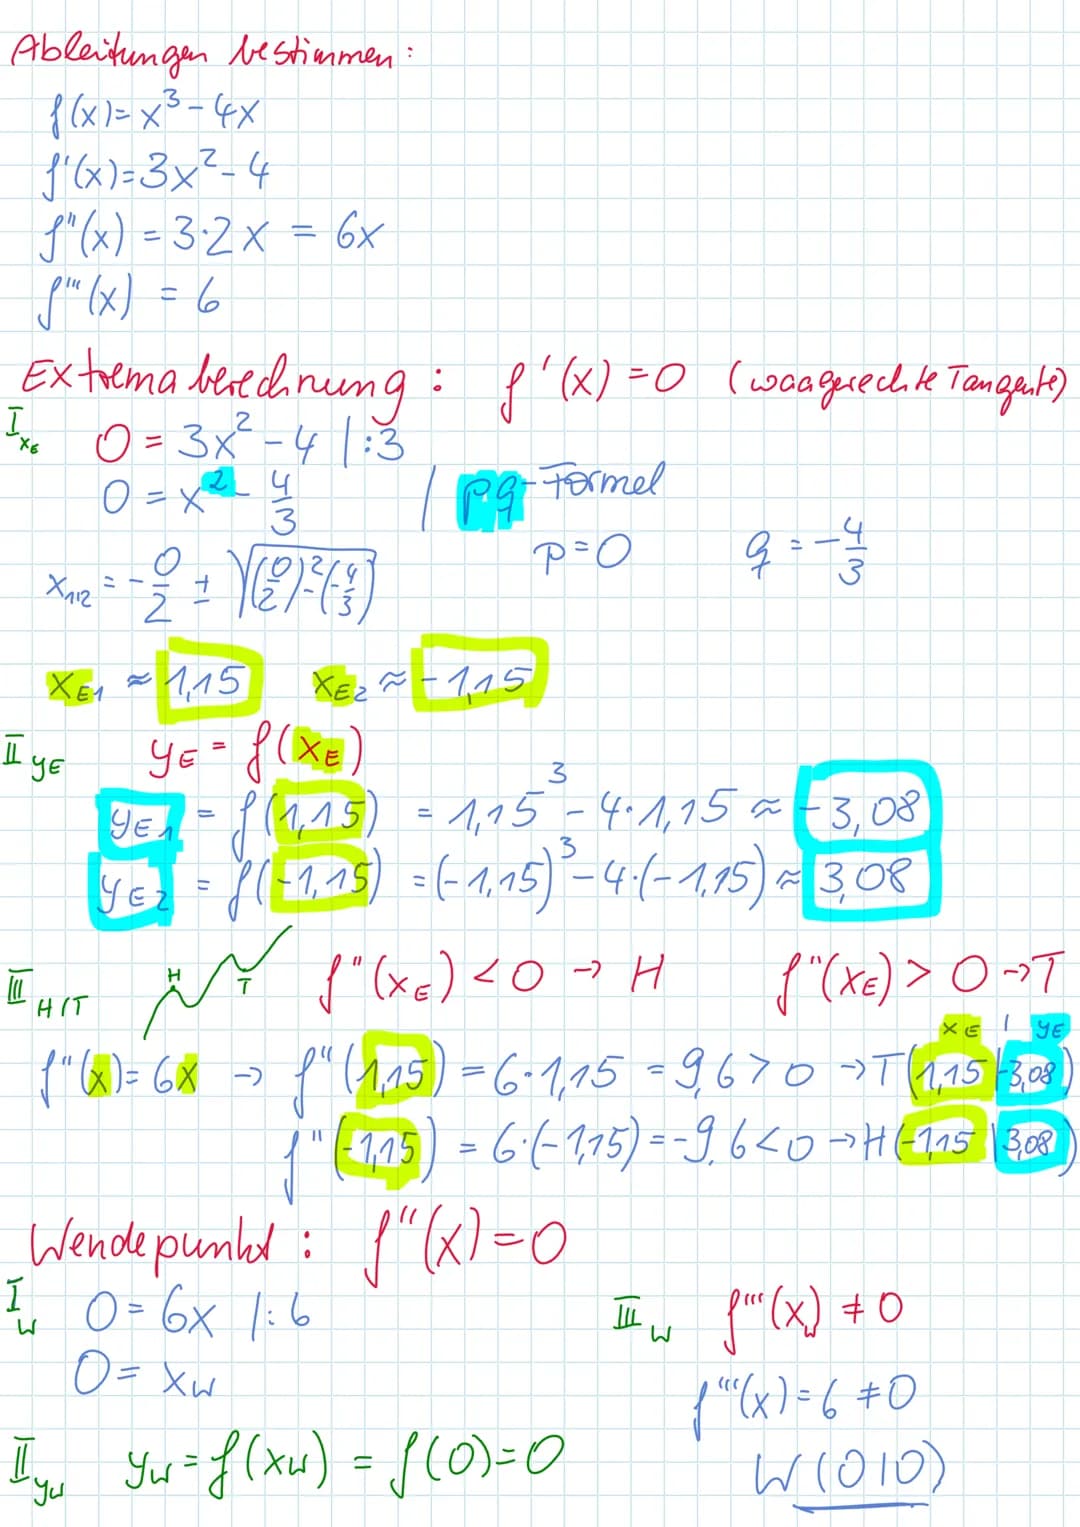 Ableitungen bestimmen:
f(x)= x³ - 4x
f'(x)= 3x² - 4
f''(x) = 3·2x = 6x
f'''(x) = 6
Extremaberechnung: f'(x) = 0 (waagerechte Tangente)
I xE 0 = 3x² - 4 |:3
0 = x² - 4/3 | pq-Formel
p = 0 q = -4/3
x1/2 = -0/2 ± √((0/2)² - (-4/3))
xE1 ≈ 1,15 xE2 ≈ -1,15
II yE yE = f(xE)
yE1 = f(1,15) = 1,15³ - 4·1,15 ≈ -3,08
yE2 = f(-1,15) = (-1,15)³ - 4·(-1,15) ≈ 3,08
III H/T H T f''(xE) < 0 → H f''(xE) > 0 → T
xE | yE
f''(x) = 6x → f''(1,15) = 6·1,15 = 9,6 > 0 → T(1,15|-3,08)
f''(-1,15) = 6·(-1,15) = -9,6 < 0 → H(-1,15|3,08)
Wendepunkt: f''(x) = 0
I W 0 = 6x |:6
0 = xW
II yW yW = f(xW) = f(0) = 0
III W f'''(xW) ≠ 0
f'''(x) = 6 ≠ 0
W(0|0)